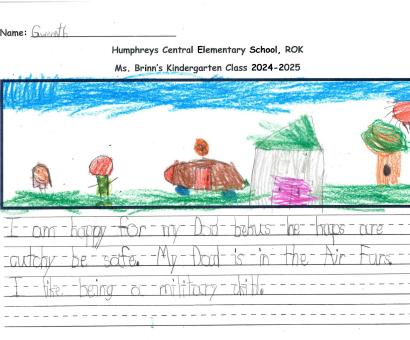 Name: Gweneth
Humphreys Central Elementary School, ROK
Ms. Brinn's Kindergarten Class 2024-2025
I am happy for my Dad behus he haps are
cutchy be safe. My Dad is in the Air Furs.
I like being a military chill.